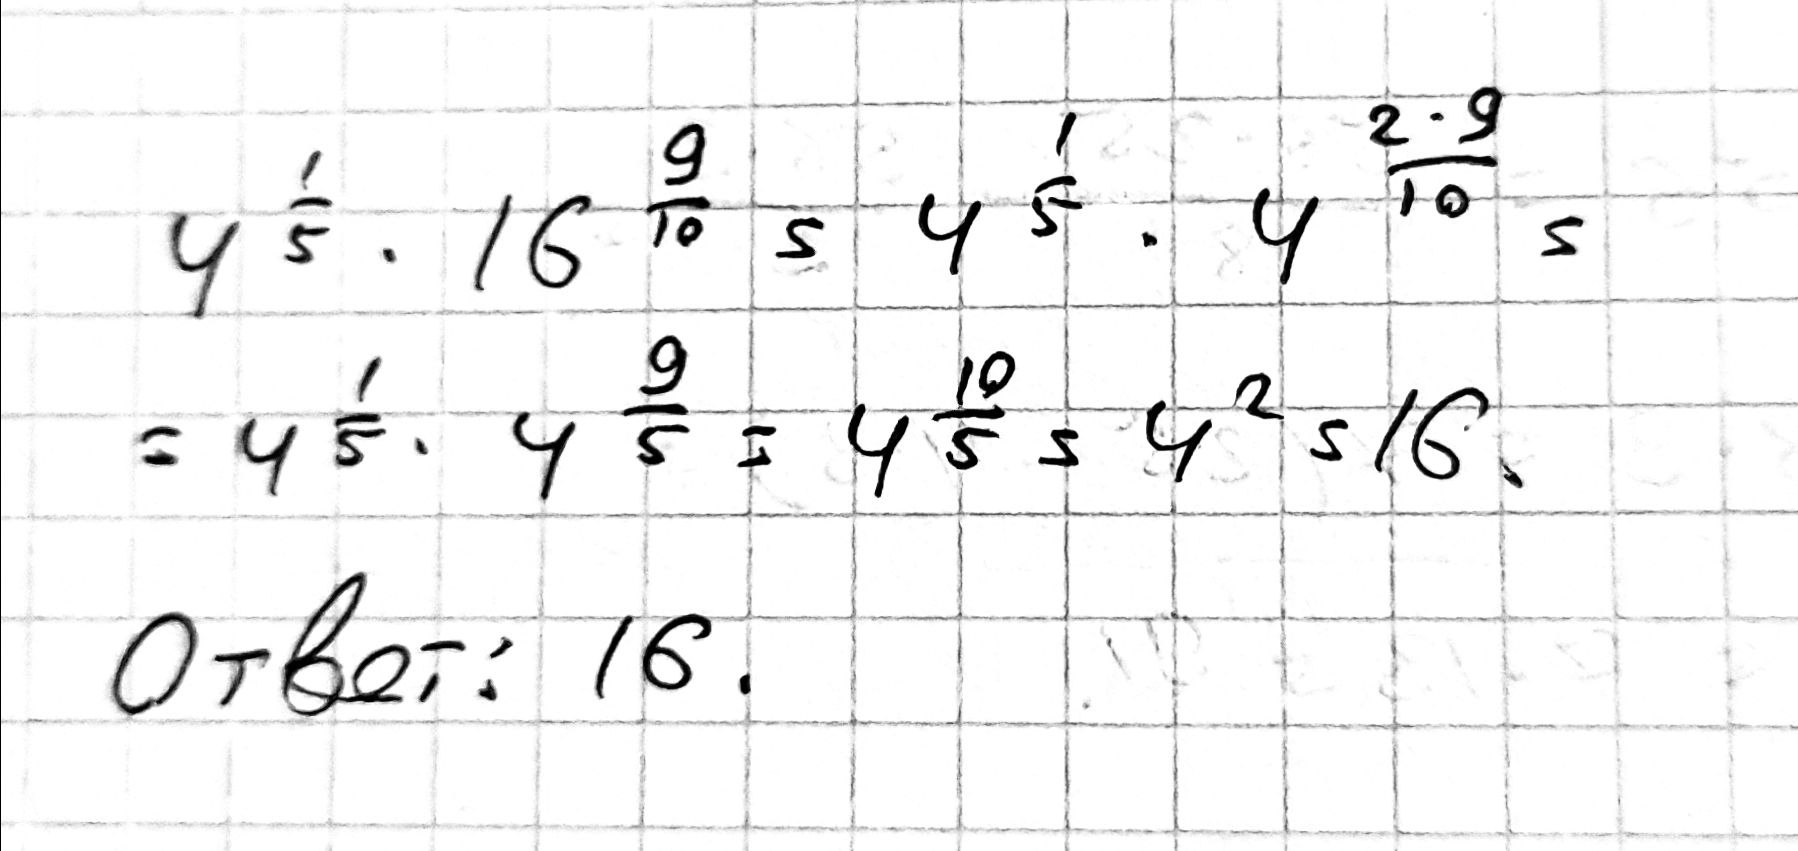 4^{\frac{1}{5}} · 16^{\frac{9}{10}} = 4^{\frac{1}{5}} · 4^{\frac{2·9}{10}} =
= 4^{\frac{1}{5}} · 4^{\frac{9}{5}} = 4^{\frac{10}{5}} = 4^2 = 16.
Ответ: 16.